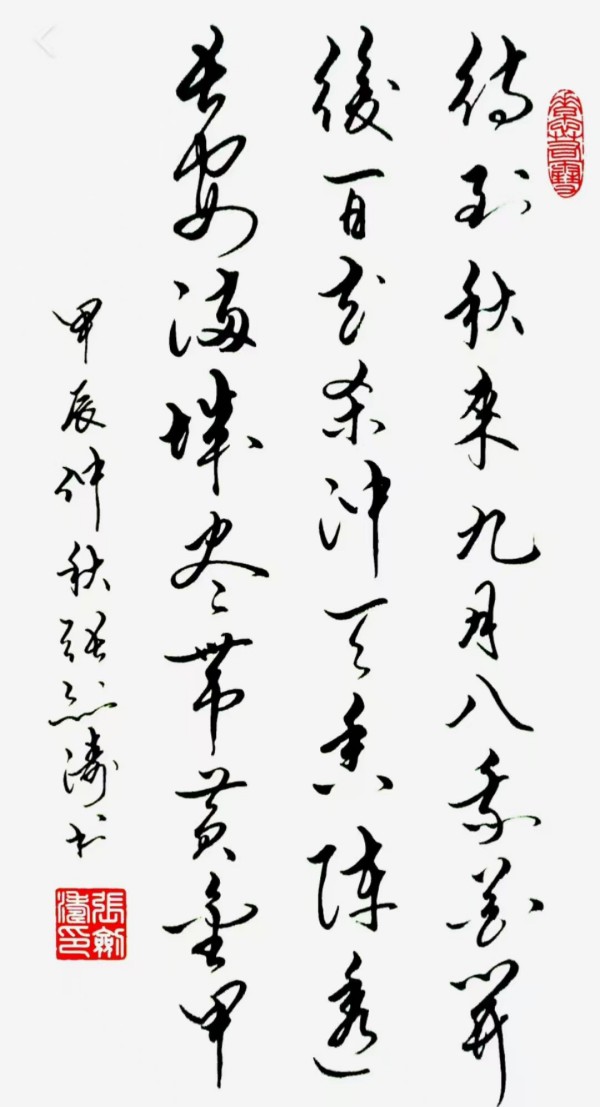 待到秋来九月八我花開
後百花杀沖天香陣透
長安滿城尽帶黄金甲
甲辰仲秋張劍濤书
張劍濤印